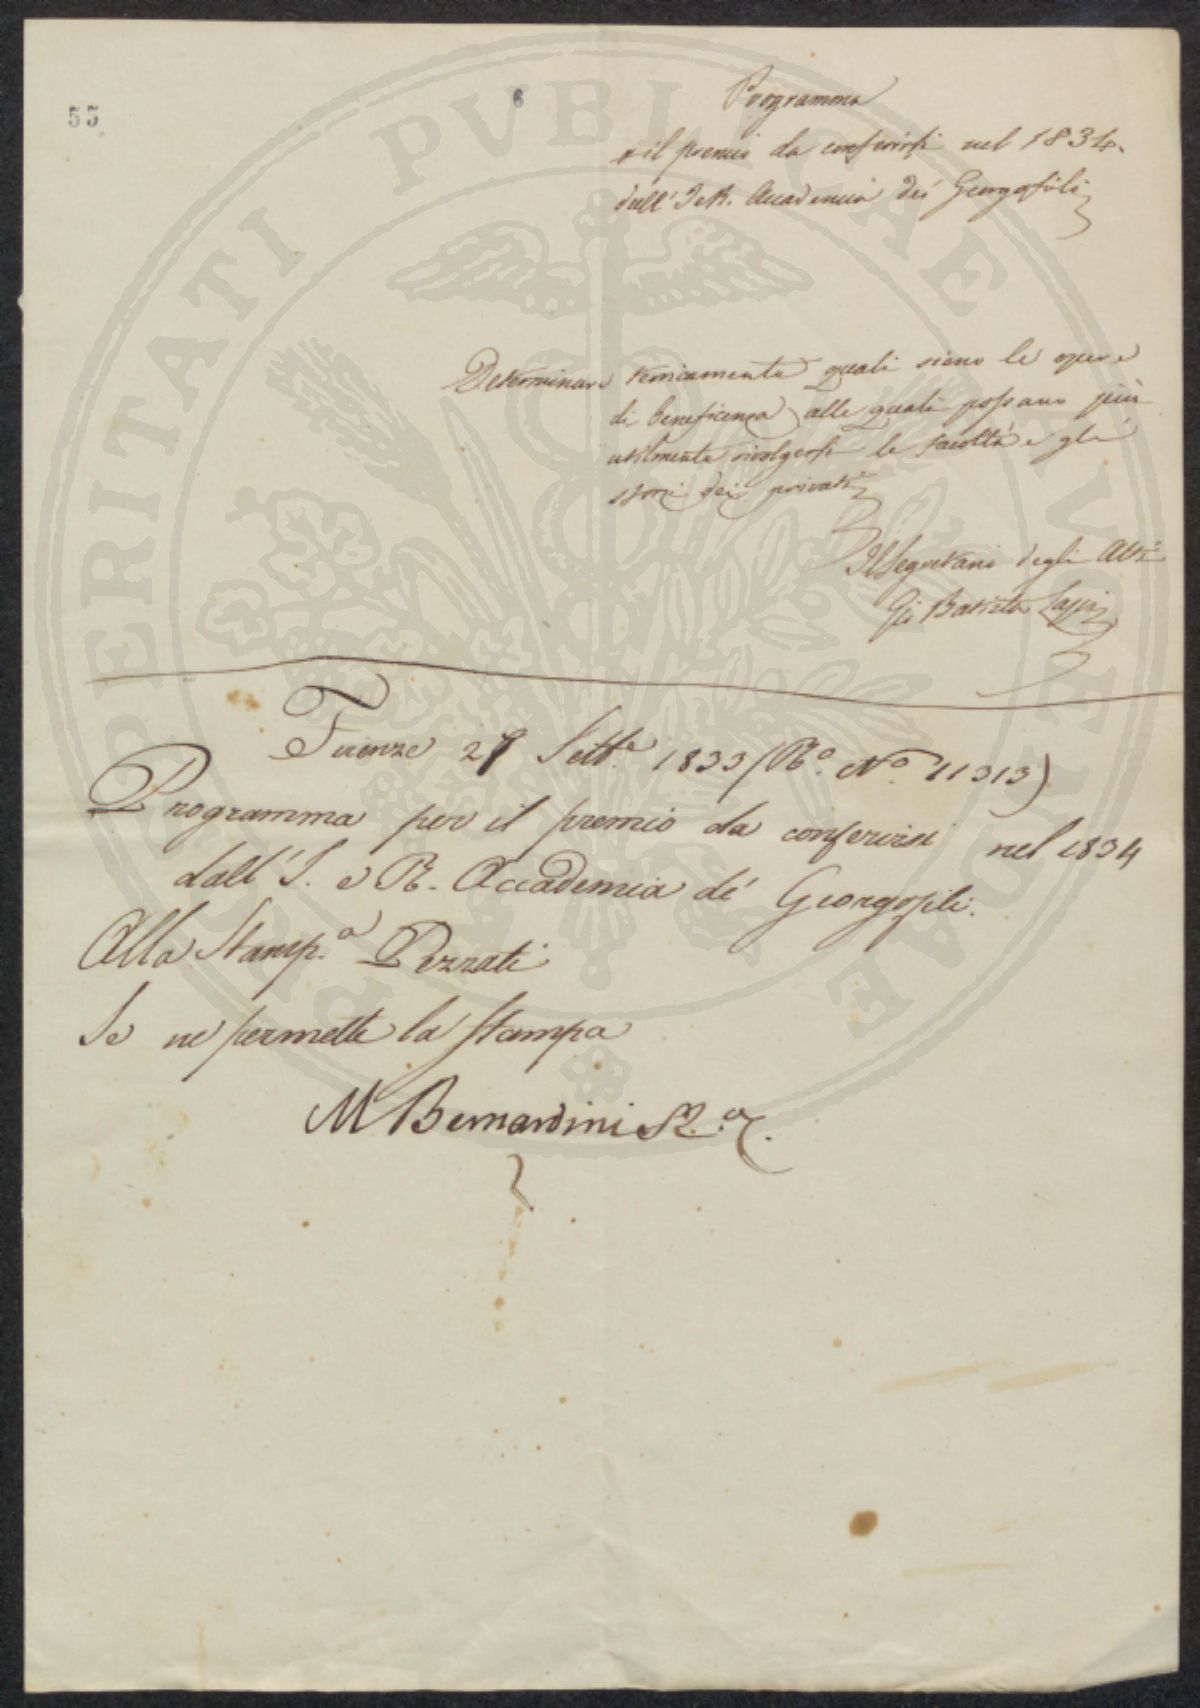 55
6
Programma
p il premio da conferirsi nel 1834.
dall' I e R. Accademia dei Georgofili
Determinare
quali sieno le opere
di beneficenza alle quali possano più
utilmente rivolgersi le facoltà e gli
sforzi dei privati
Il Segretario degli Atti
Gio Batista Lapi
Firenze 27 Sett.e 1833 (R.o N.o 11313)
Programma per il premio da conferirsi nel 1834
dall' I. e R. Accademia de' Georgofili.
Alla Stamp.a Pezzati
Se ne permette la stampa
M Bernardini
PUBLICAE
PERITATI